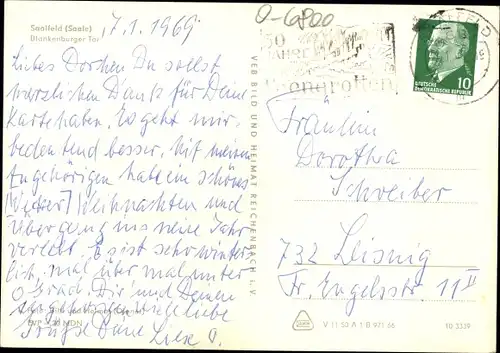 Saalfeld (Saale)
Blankenburger Tor
7.1.1969
Liebes Dorchen Du sollst
herzlichen Dank für Deine
Karte haben. Es geht mir
bedeutend besser. Mit meinen
Angehörigen habe ein schönes
Weihnachten und
Übergang ins neue Jahr
verlebt. Es ist sehr winter-
lich, mal über mal unter
0 Grad. Dir und Deinen
Angehörigen liebe
Grüße Deine Liese O.
EVP –,20 MDN
VEB BILD UND HEIMAT REICHENBACH i. V.
0-6800
50
JAHRE
Feengrotten
SAALFELD
10
DEUTSCHE
DEMOKRATISCHE REPUBLIK
Fräulein
Dorothea
Schreiber
732 Leisnig
Fr. Engelsstr. 11 II
V 11 50 A 1 B 971 66
10 3339